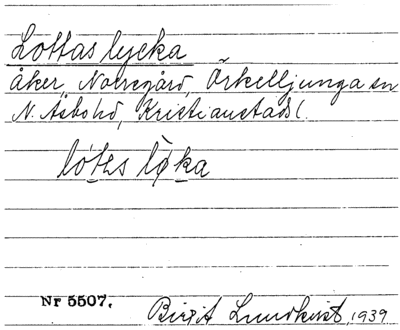 Lottas lycka
åker, Norregård, Örkelljunga sn
N. Åsbohd, Kristianstads l.
Nr 5507.
Birgit Lundkvist, 1939